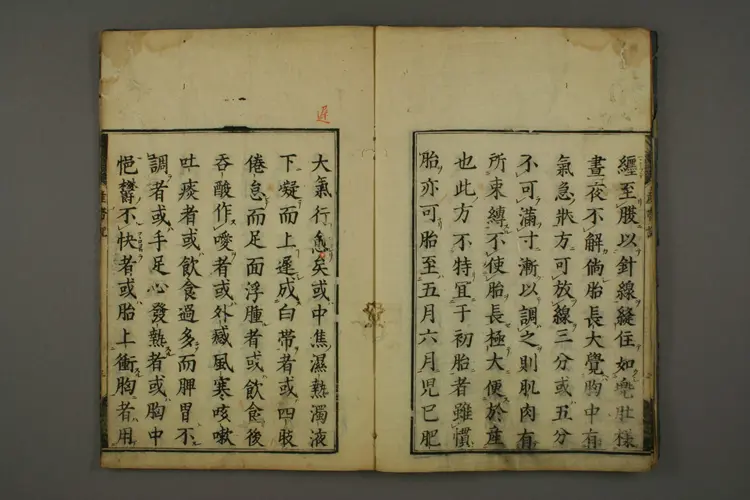 纏至股以針線縫住如兜肚樣
晝夜不解倘胎長大覺胸中有
氣急狀方可放線三分或五分
不可滿寸漸以調之則肌肉有
所束縛不使胎長極大便於產
也此方不特宜于初胎者雖慣
胎亦可胎至五月六月児已肥
遲
大氣行愈矣或中焦濕熱濁液
下凝而上遲成白帶者或四肢
倦怠而足面浮腫者或飲食後
吞酸作噯者或外感風寒咳嗽
吐痰者或飲食過多而脾胃不
調者或手足心發熱者或胸中
悒欝不快者或胎上衝胸者用